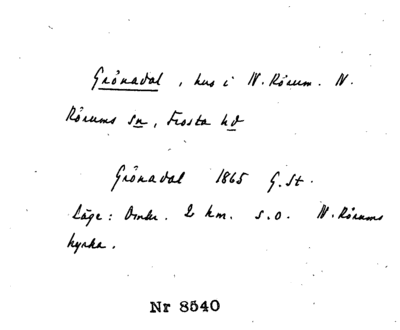 Grönadal, hus i N. Rörum. N.
Rörums sn, Frosta hd
Grönadal 1865 G. St.
Läge: Omkr. 2 km. s.o. N. Rörums
kyrka.
Nr 8540